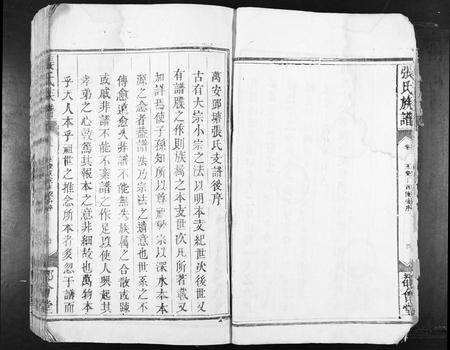 萬安鄧塘張氏支譜後序
古有大宗小宗之法以明本支紀世次後世又
有譜牒之作則族屬之本支世次凡所著載又
加詳焉使子孫知所以尊祖敬宗以深水木本
源之念者蓋譜法乃宗法之遺意也世系之不
傳愈遠愈久非譜不能無失族屬之合散或疎
或戚非譜不能不紊譜之作足以使人興起其
孝弟之心敦篤其報本之意非細故也萬物本
乎天人本乎祖世之推念所本者多忽于譜而
張氏族譜
張氏族譜